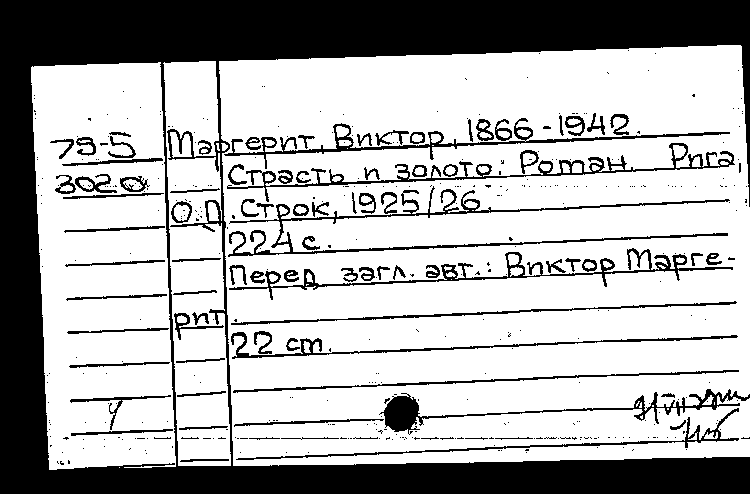 79-5 Маргерит, Виктор, 1866-1942.
3020 Страсть и золото: Роман. Рига,
О.Д. Строк, 1925/26.
224 с.
Перед загл. авт.: Виктор Марге-
рит.
22 см.